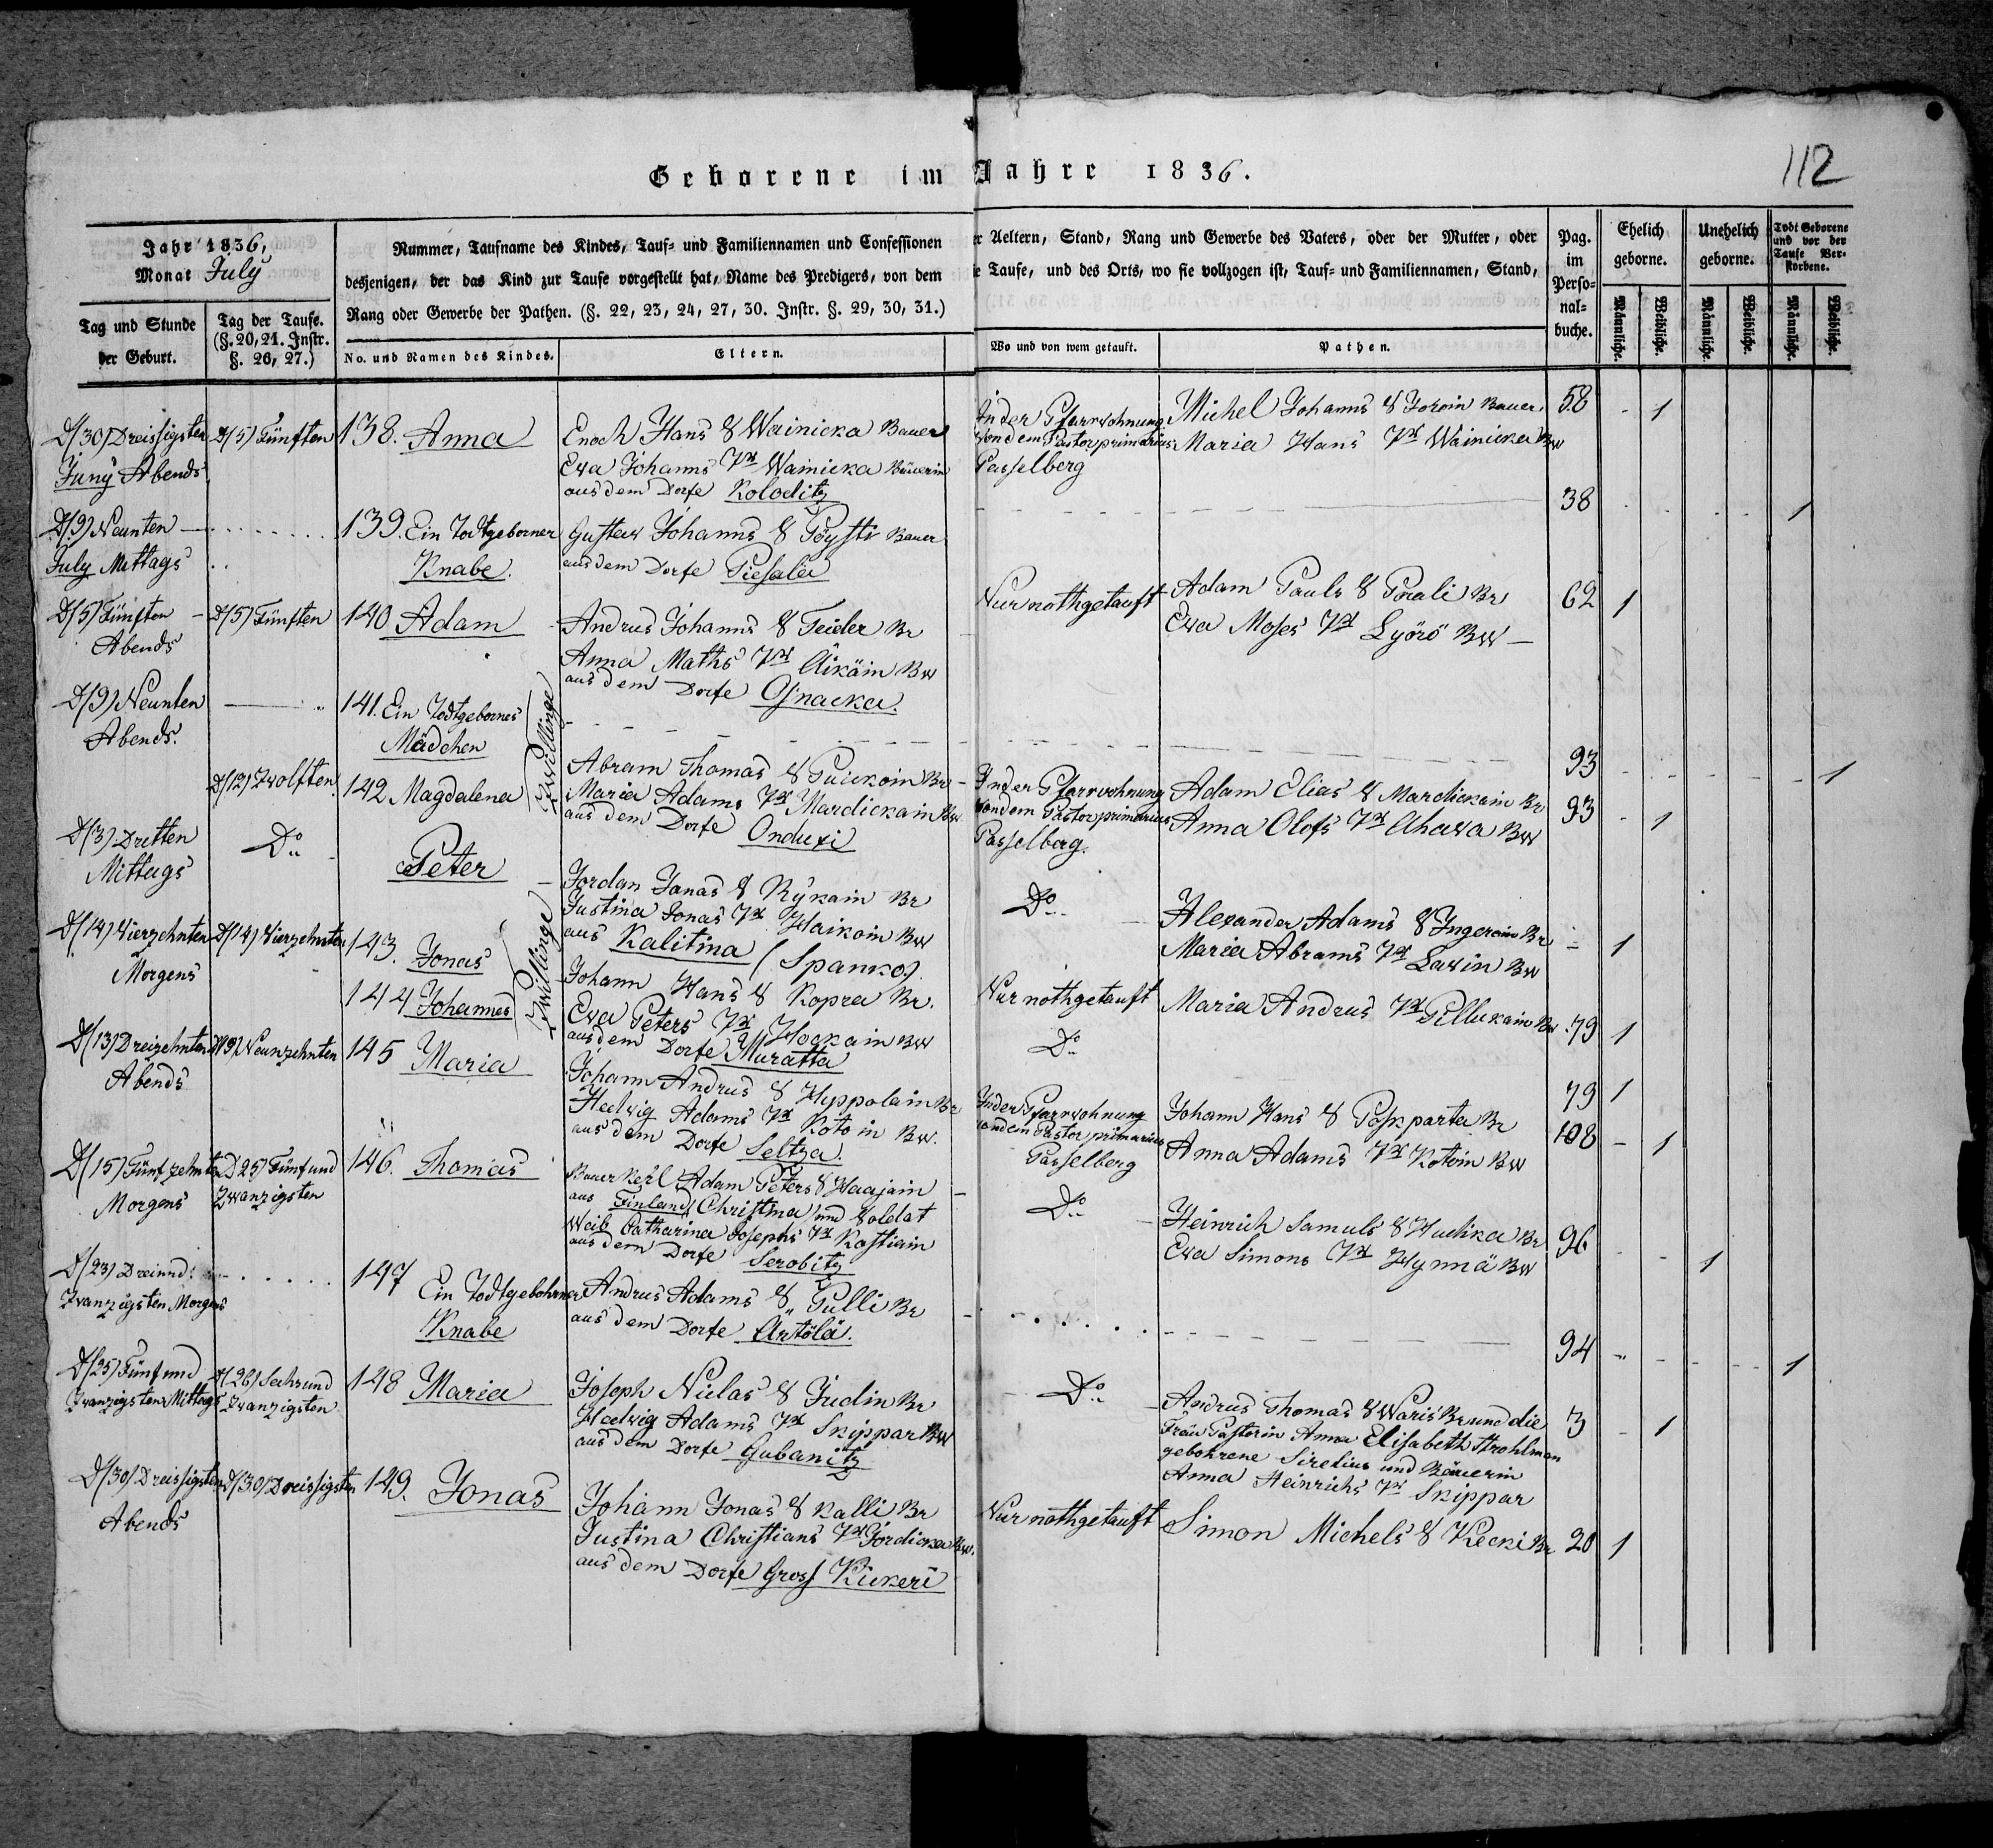 Geborene im Jahre 1836.
112
Jahr 1836,
Monat July
Tag und Stunde
der Geburt.
Tag der Taufe.
(§. 20, 21. Instr.
§. 26, 27.)
Nummer, Taufname des Kindes, Tauf- und Familiennamen und Confessionen
desjenigen, der das Kind zur Taufe vorgestellt hat, Name des Predigers, von dem
Rang oder Gewerbe der Pathen. (§. 22, 23, 24, 27, 30. Instr. §. 29, 30, 31.)
No. und Namen des Kindes.
Eltern.
r Aeltern, Stand, Rang und Gewerbe des Vaters, oder der Mutter, oder
e Taufe, und des Orts, wo sie vollzogen ist, Tauf- und Familiennamen, Stand,
Wo und von wem getauft.
Pathen.
Pag.
im
Perso-
nal-
buche.
Ehelich
geborne.
Unehelich
geborne.
Todt Geborene
und vor der
Taufe Ver-
storbene.
Männliche.
Weibliche.
Männliche.
Weibliche.
Männliche.
Weibliche.
D/30/ Dreissigsten
Juny Abends
D/5/ Fünften
138. Anna
Enoch Hans S Wainicka Bauer
Ewa Johanns Tr Wainicka Bäuerin
aus dem Dorfe Koloditz
In der Pfarrwohnung
von dem Pastor primarius
Passelberg
Michel Johanns S Joroin Bauer
Maria Hans Tr Wainicka Bw
58 - 1
D/9/ Neunten
July Mittags
139. Ein Todtgeborner
Knabe.
Gustaw Johanns S Pöysti Bauer
aus dem Dorfe Piesalä
38 1
D/5/ Fünften
Abends
D/5/ Fünften
140 Adam
Andrus Johanns S Feider Br
Anna Maths Tr Äikäin Bw
aus dem Dorfe Osnacka.
Nur nothgetauft
Adam Pauls S Porali Br
Ewa Moses Tr Lyörö Bw
62 1
D/9/ Neunten
Abends.
141. Ein Todtgebornes
Mädchen
Zwillinge
93 1
D/12/ Zwölften
142 Magdalena
Abram Thomas S Puickoin Br
Maria Adams Tr Mardickain Bw
aus dem Dorfe Onduxi
In der Pfarrwohnung
von dem Pastor primarius
Passelberg.
Adam Elias S Mardickain Br
Anna Olofs Tr Ahawa Bw
93 - 1
D/3/ Dritten
Mittags
Do
Peter
Jordan Jonas S Rykain Br
Justina Jonas Tr Haikoin Bw
aus Kalitina (Spanko).
Do
Alexander Adams S Ingeroin Br
Maria Abrams Tr Lawin Bw
- 1
D/14/ Vierzehnten
Morgens
D/14/ Vierzehnten
143. Jonas
144 Johannes
Zwillinge
Johann Hans S Kopra Br.
Ewa Peters Tr Hockain Bw
aus dem Dorfe Muratta
Nur nothgetauft
Maria Andrus Tr Pillukain Bw
79 1
Do
79 1
D/13/ Dreizehnten
Abends
D/19/ Neunzehnten
145 Maria
Johann Andrus S Hyppolain Br
Hedwig Adams Tr Kotoin Bw.
aus dem Dorfe Seltza.
In der Pfarrwohnung
von dem Pastor primarius
Passelberg
Johann Hans S Posk parta Br
Anna Adams Tr Kotoin Bw
108 - 1
D/15/ Fünfzehnten
Morgens
D 25/ Fünf und
Zwanzigsten
146. Thomas
Bauer Kerl Adam Peters S Haajain
aus Finland Christma und Soldat
Weib Catharina Josephs Tr Kostiain
aus dem Dorfe Serobitz
Do
Heinrich Samuls S Huhka Br
Ewa Simons Tr Hynnä Bw
96 - - 1
D/23/ Dreiund
Zwanzigsten Morgens
147 Ein Todtgebohrner
Knabe
Andrus Adams S Pulli Br
aus dem Dorfe Artölä.
94 1
D/25/ Fünf und
Zwanzigsten Mittags
D/26/ Sechs und
Zwanzigsten
148 Maria
Joseph Niclas S Judin Br
Hedwig Adams Tr Skippar Bw
aus dem Dorfe Gubanitz
Do
Andrus Thomas S Waris Br und die
Frau Pastorin Anna Elisabeth Strohlman
gebohrene Sirelius und Bäuerin
Anna Heinrichs Tr Skippar
3 - 1
D/30/ Dreissigsten
Abends
D/30/ Dreissigsten
149. Jonas
Johann Jonas S Kalli Br
Justina Christians Tr Jordicka Bw.
aus dem Dorfe Gross Kickeri
Nur nothgetauft
Simon Michels S Kecki Br
20 1